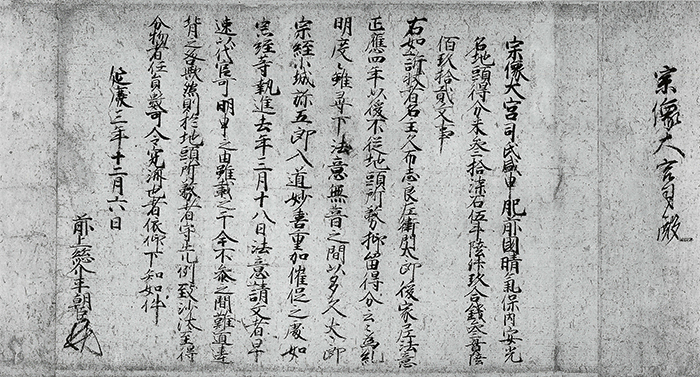 宗像大宮司殿
宗像大宮司氏盛申肥前國晴氣保内安光
名地頭得分米参拾柒石伍斗陸升玖合錢参貫陸
佰玖拾貳文事
右如訴状者名主 志良左衛門太郎後家尼法意
正應四年以後不從地頭所務抑留得分云々爲糺
明度々雖尋下法意無音之間以多久太郎
宗經小城弥五郎入道妙善重加催促之處如
宗經等執進去年三月十八日法意請文者早
速以代官可明申之由雖載之于今不參之間難遁違
背之咎歟然則於地頭所務者守先例致沙汰至得
分物者任員數可令究濟也者依仰下知如件
延慶三年十二月六日
前上総介平朝臣